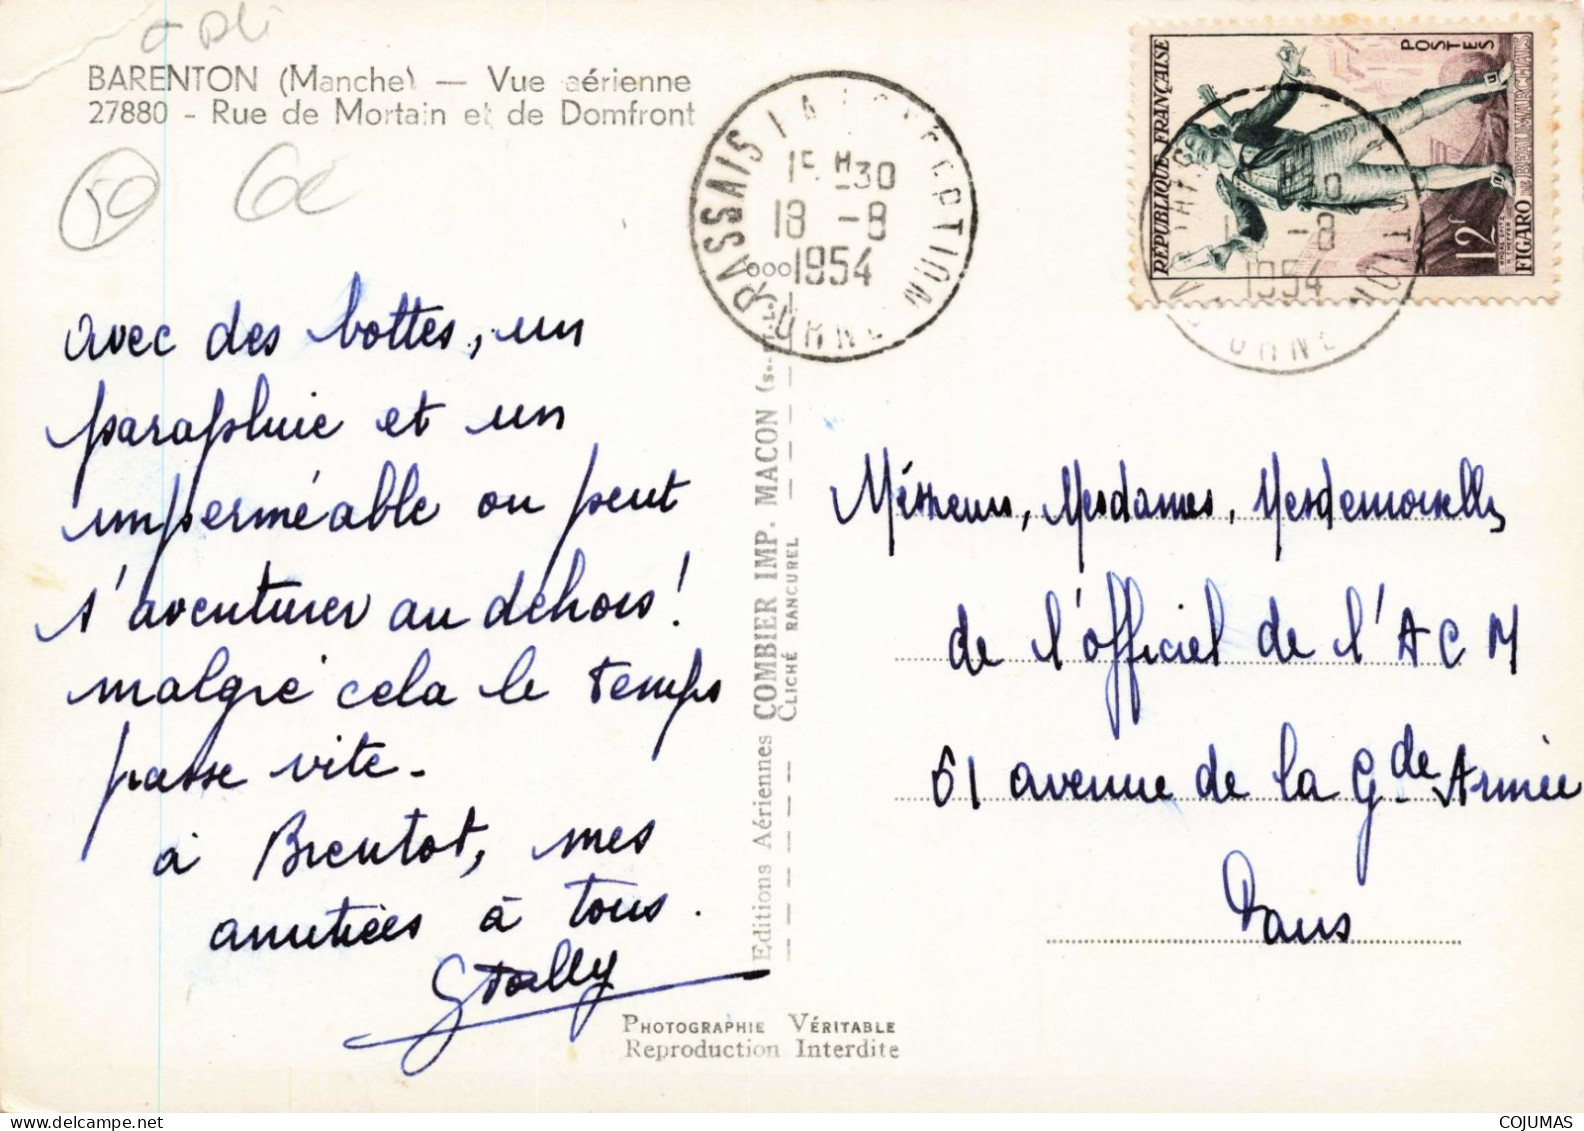 + pli
BARENTON (Manche) — Vue aérienne
27880 - Rue de Mortain et de Domfront
50
6€
PASSAIS LA CONCEPTION
15 H30
18 -8
1954
ORNE
RÉPUBLIQUE FRANÇAISE
POSTES
12f
FIGARO DE BEAUMARCHAIS
avec des bottes, un
parapluie et un
imperméable on peut
s'aventurer au dehors !
malgré cela le temps
passe vite -
à Bientot, mes
amitiées à tous.
Editions Aériennes COMBIER IMP. MACON
CLICHÉ RANCUREL
Méssieurs, Mesdames, Mesdemoiselles
de l'officiel de l'A C M
61 avenue de la Gde Armée
Paris
PHOTOGRAPHIE VÉRITABLE
Reproduction Interdite
COJUMAS